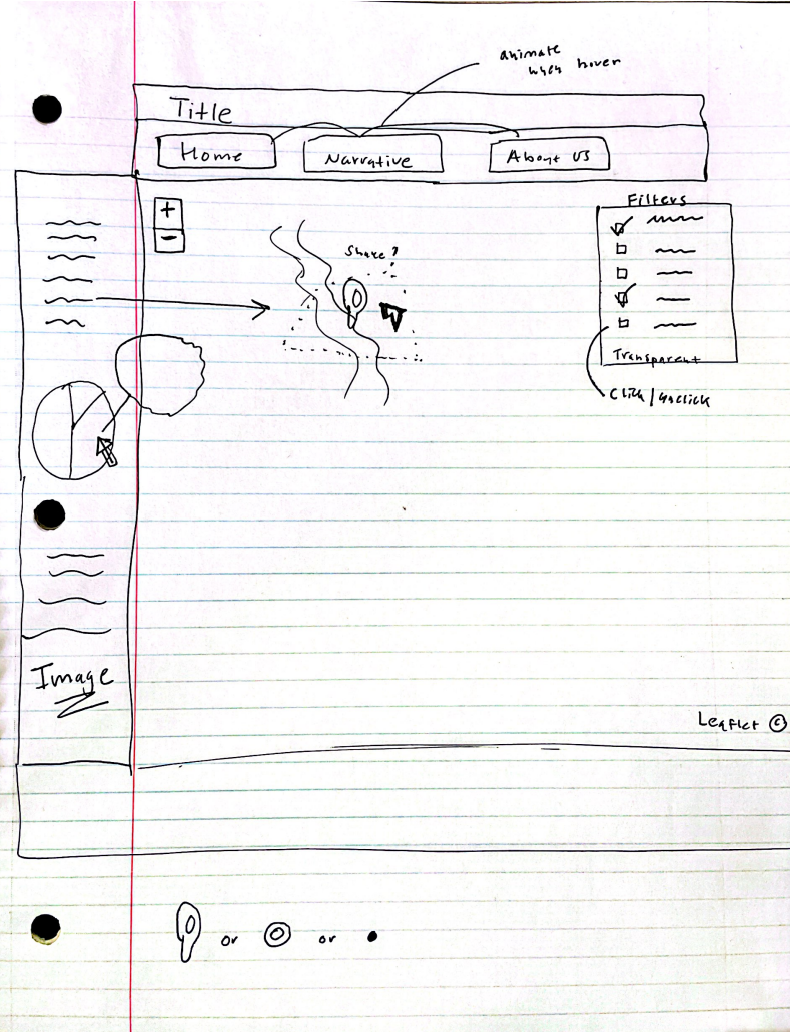 animate
when hover
Title
Home
Narrative
About us
+
-
Filters
Share?
Transparent
Click/unclick
Image
Leaflet ©
or
or